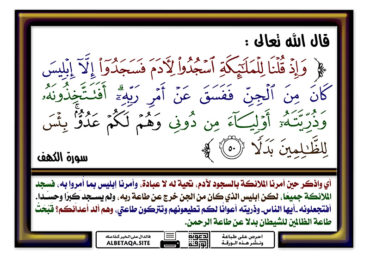 قال الله تعالى :
﴿ وَإِذْ قُلْنَا لِلْمَلَٰٓئِكَةِ ٱسْجُدُوا۟ لِءَادَمَ فَسَجَدُوٓا۟ إِلَّآ إِبْلِيسَ
كَانَ مِنَ ٱلْجِنِّ فَفَسَقَ عَنْ أَمْرِ رَبِّهِۦٓ ۗ أَفَتَتَّخِذُونَهُۥ
وَذُرِّيَّتَهُۥٓ أَوْلِيَآءَ مِن دُونِى وَهُمْ لَكُمْ عَدُوٌّۢ ۚ بِئْسَ
لِلظَّٰلِمِينَ بَدَلًا ٥٠ ﴾
سورة الكهف
أي واذكر حين أمرنا الملائكة بالسجود لآدم، تحية له لا عبادة، وأمرنا إبليس بما أمروا به، فسجد
الملائكة جميعا، لكن إبليس الذي كان من الجن خرج عن طاعة ربه، ولم يسجد كبرًا وحسدا.
أفتجعلونه -أيها الناس- وذريته أعوانا لكم تطيعونهم وتتركون طاعتي، وهم ألد أعدائكم؟ قبُحَت
طاعة الظالمين للشيطان بدلا عن طاعة الرحمن.
فالدال على الخير كفاعله
ALBETAQA.SITE
احرص على طباعة
ونشر هذه الورقة